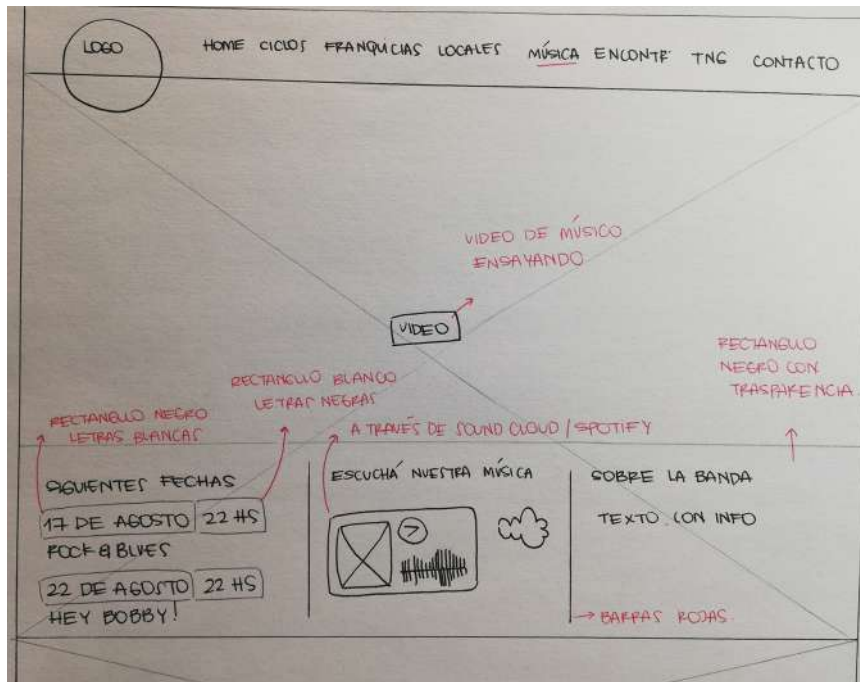 LOGO
HOME CICLOS FRANQUICIAS LOCALES MÚSICA ENCONTR' TNG CONTACTO
VIDEO DE MÚSICO
ENSAYANDO
VIDEO
RECTANGULO
NEGRO CON
TRASPARENCIA
RECTANGULO BLANCO
LETRAS NEGRAS
RECTANGULO NEGRO
LETRAS BLANCAS
A TRAVÉS DE SOUND CLOUD / SPOTIFY
SIGUIENTES FECHAS
17 DE AGOSTO 22 HS
ROCK & BLUES
22 DE AGOSTO 22 HS
HEY BOBBY!
ESCUCHÁ NUESTRA MÚSICA
SOBRE LA BANDA
TEXTO CON INFO
BARRAS ROJAS.